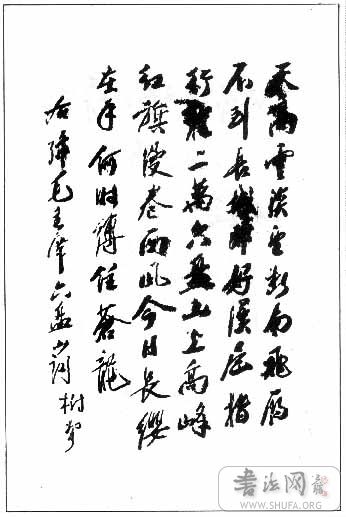 天高雲淡望斷南飛雁
不到長城非好漢屈指
行程二萬六盤山上高峰
紅旗漫卷西風今日長纓
在手何時縛住蒼龍
右錄毛主席六盤山詞 樹
書法网
WWW.SHUFA.ORG